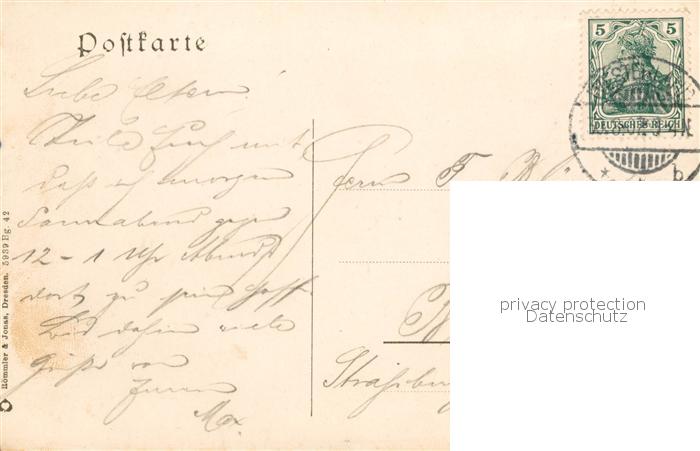 Postkarte
Liebe Eltern!
Theile Euch mit
daß ich morgen
Sonnabend gegen
12 - 1 Uhr Abends
dort zu sein hoffe.
Bis dahin viele
Grüße von
Eurem
Max.
Römmler & Jonas, Dresden. 5939 Bg. 42
5 5
DEUTSCHES REICH
Herrn F.
Straßbur
privacy protection
Datenschutz